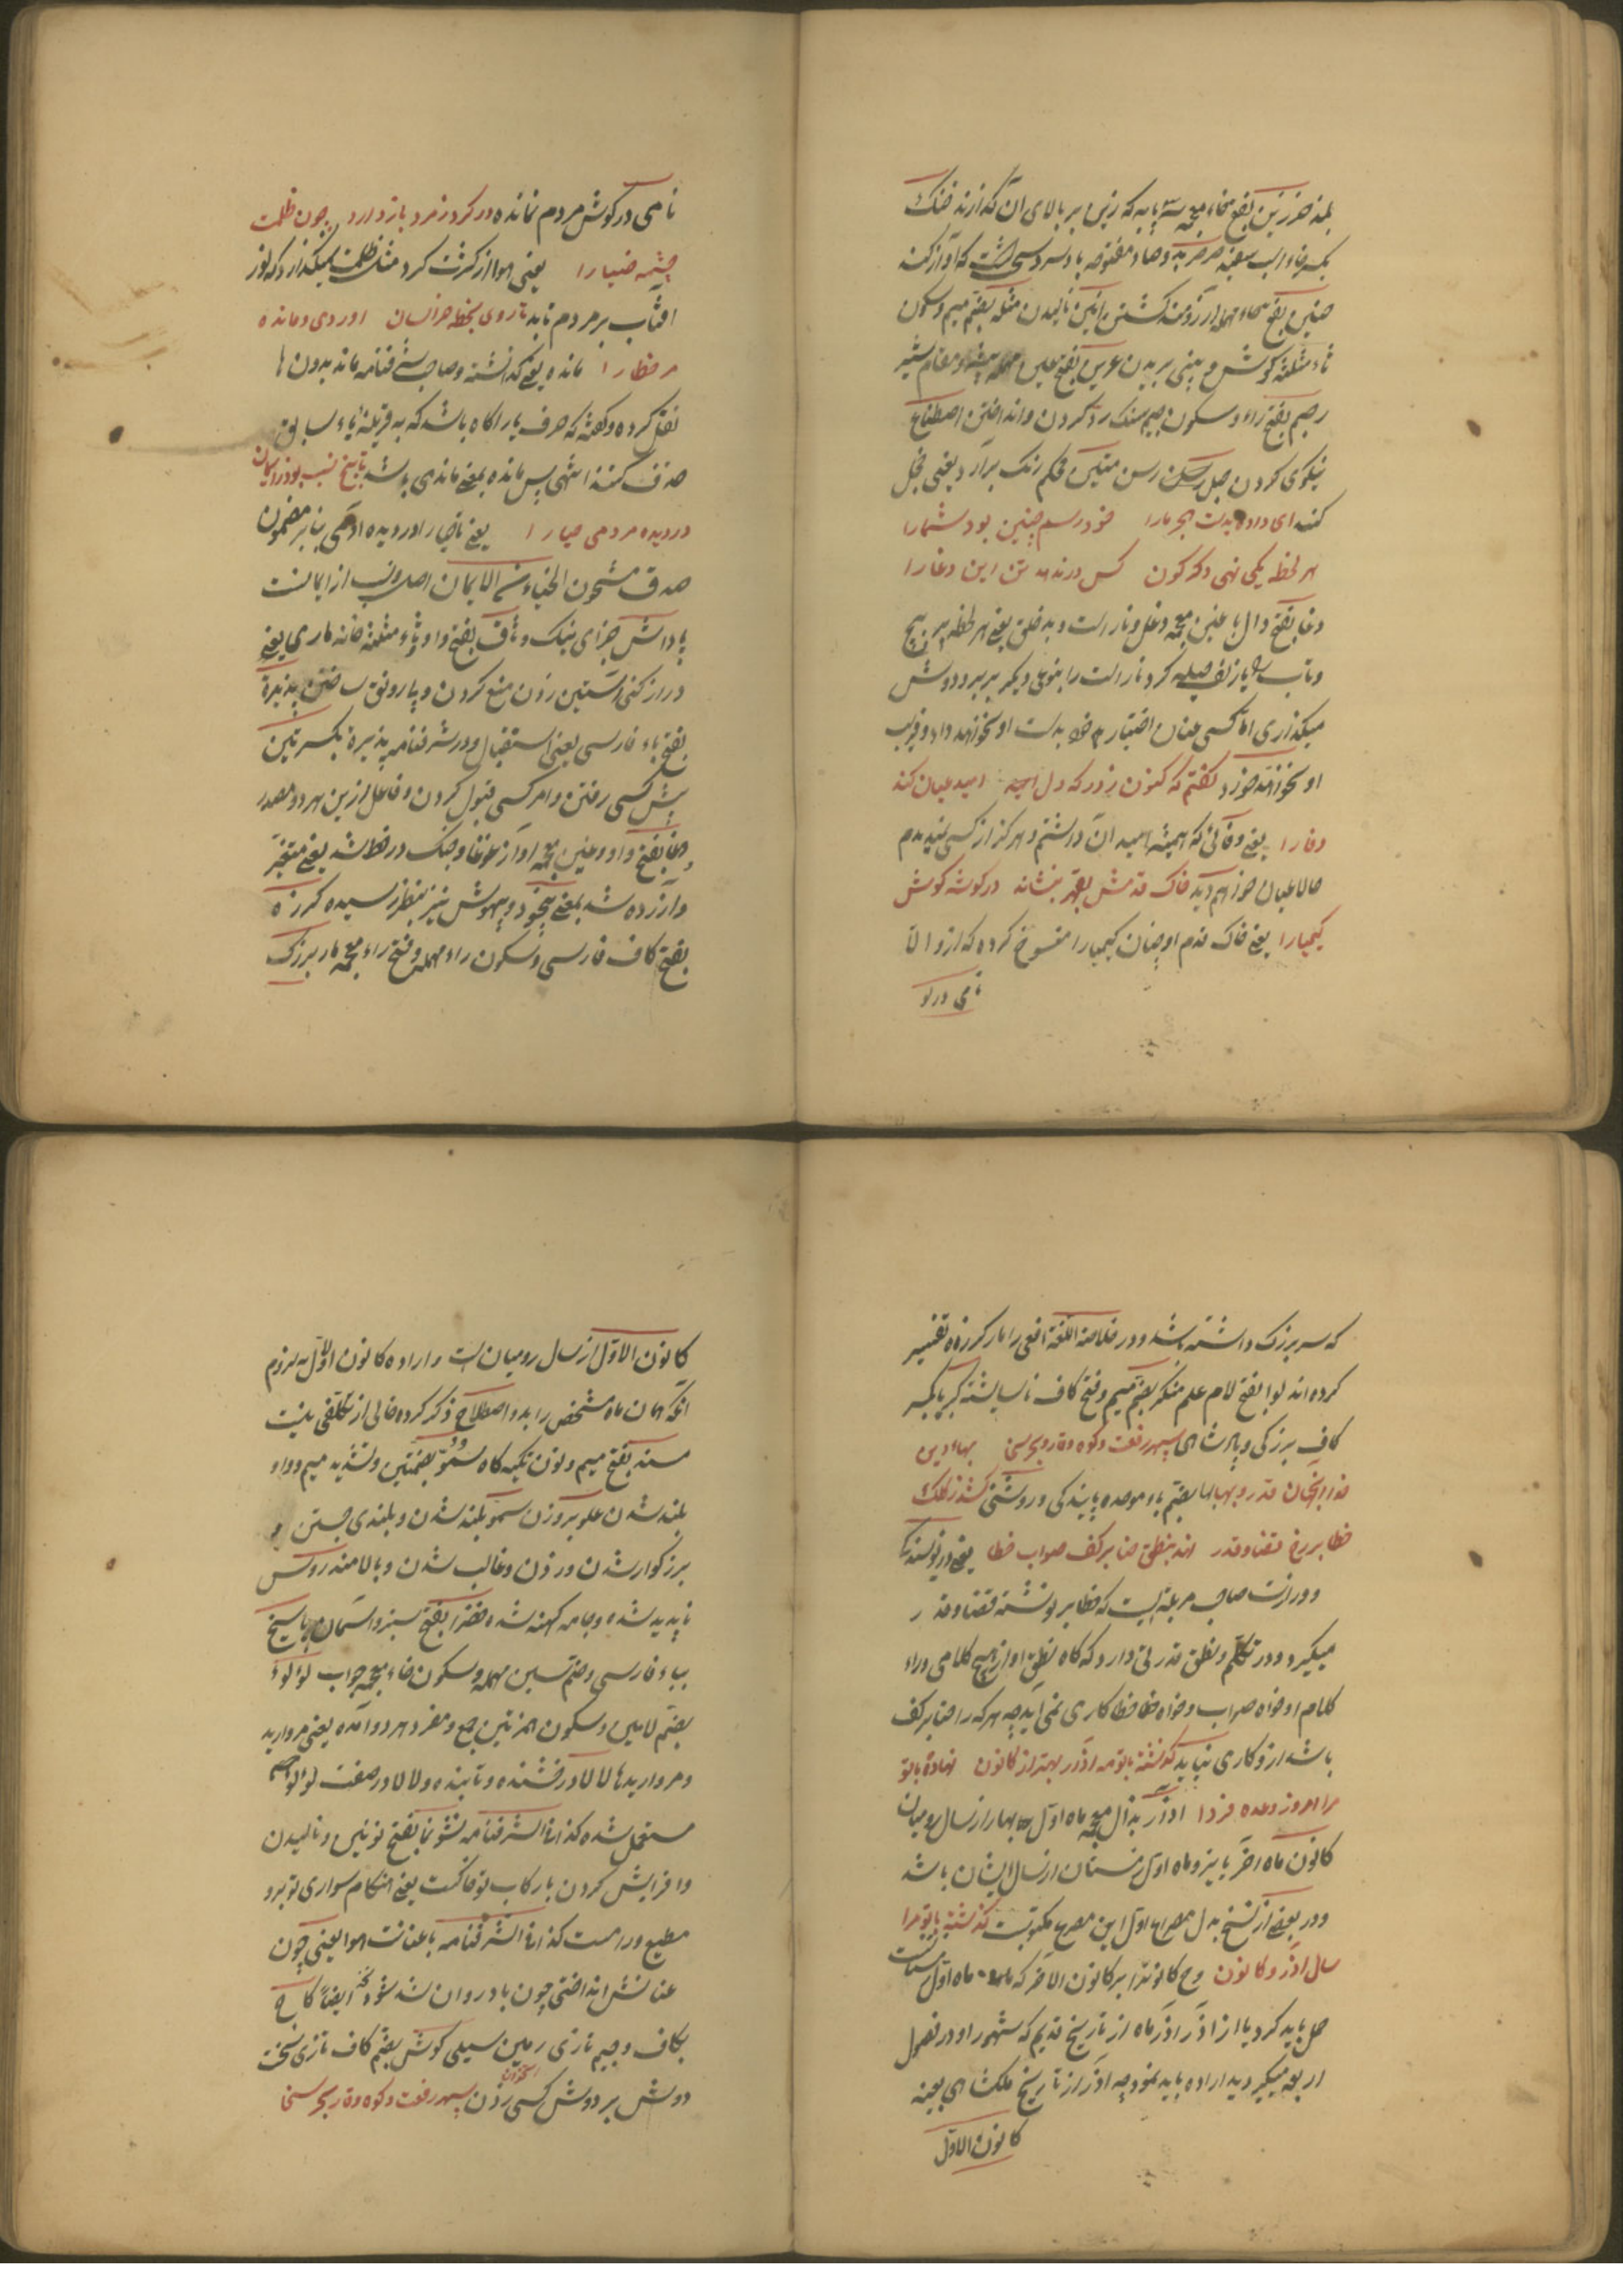 بلند خرزین بفتح خاء معجمه سه پایه که زین بر بالای آن گذارند خنک
بکسر خاء اسب سفید صرصر بد و صاد مفتوحه باد سرد سخت که آواز کند
حنین بفتح حاء مهمله آرزومند گشتن انین نالیدن مثله بضم میم و سکون
ثاء مثلثه گوش و بینی بریدن عرین بفتح عین مهمله بیشه و مقام شیر
رجم بفتح راء و سکون جیم سنگ رد کردن و انداختن اصطناع
نیکوی کردن حبل رسن متین محکم رنگ برآرد یعنی خجل
کند ای داده بدست هجر ما را خود رسم چنین بود شما را
هر لحظه یکی نهی دگرگون کس درندهد تن این دغا را
دغا بفتح دال با غین معجمه دغل و ناراست و بدخلق یعنی هر لحظه پیچ
و تاب زلف حیله گر و ناراست را بنوعی دیگر بر بر و دوش
میگذاری اما کسی عنان اختیار خود بدست او نخواهد داد و فریب
او نخواهد خورد گفتم که کنون زدر که دل امید عیان کند
وفا را یعنی وفائی که همیشه امید آن داشتم و هرگز از کسی ندیدم
حالا عیان خواهم دید خاک قدمش بقهر بنشاند در گوشه گوش
کیمیا را یعنی خاک قدم او چنان کیمیا را منسوخ کرده که ازو الا
نامی در گو
نامی در گوش مردم نمانده در گرد زمرد باز دارد چون ظلمت
چشمه ضیا را یعنی هوا از کثرت گرد مثل ظلمت نمیگذارد که نور
آفتاب بر مردم تابد تا روی بخطه خراسان آوردی و مانده
مر خطا را مانده یعنی گذاشته و صاحب شرفنامه ماند بدون ها
نقل کرده و گفته که حرف یا را گاه باشد که به قرینه یاء سابق
حذف کنند انتهی پس مانده بمعنی ماندی باشد تا بیخ نسب بود ز ایمان
در دیده مردمی حیا را یعنی تا حیا را در دیده آدمی بنا بر مضمون
صدق مشحون الحیاء من الایمان اصل و نسب از ایمانست
پاداش جزای نیک وثاق بفتح واو و ثاء مثلثه خانه ماری یعنی
دراز کنی آستین زدن منع کردن و یا رونق ساختن پذیره
بفتح باء فارسی یعنی استقبال و در شرفنامه پذیره بکسرتین
پیش کسی رفتن و امر کسی قبول کردن و فاعل ازین هر دو مصدر
وغا بفتح واو و غین معجمه آواز غوغا و جنک در خط شد یعنی متغیر
و آزرده شد بمعنی بیخود و بیهوش نیز بنظر رسیده کرزه
بفتح کاف فارسی و سکون راء مهمله و فتح زاء معجمه مار بزرگ
که سر بزرگ داشته باشد و در خلاصة اللغة افعی را مار کرزه تفسیر
کرده اند لوا بفتح لام علم منکر بضم میم و فتح کاف ناشایسته کبریا بکسر
کاف بزرگی و پادشاهی سپهر رفعت و کوه وقار و بحر سخی بهاء دین
خدا آنجهان قدر و بها بها بضم باء موحده پایندگی و روشنی کشد ز کلک
خطا بر رخ قضا و قدر نهد بنطق حنا بر کف صواب خطا یعنی در نویسندگی
و وزارت صاحب مرتبه ایست که خطا بر نوشته قضا و قدر
میگیرد و در تکلم و نطق قدرتی دارد که گاه نطق او از هیچ کلامی وراء
کلام او خواه صواب و خواه خطا خطا کاری نمی آید چه هر که را حنا بر کف
باشد ازو کاری نیاید گذشته با تو مه آذر بهتر از کانون نهاده با تو
مرا امروز وعده فردا آذر بذال معجمه ماه اول بهار از سال رومیان
کانون ماه آخر پاییز و ماه اول زمستان از سال ایشان باشد
و در بعضی از نسخ بدل مصراع اول این مصرع مکتوبست گذشته با تو مرا
سال آذر و کانون وح کانون را بر کانون الآخر که ماه اول زمستانست
حمل باید کرد یا از آذر آذر ماه از تاریخ قدیم که شهور او در فصول
اربعه میگردید اراده باید نمود چه آذر از تاریخ ملکشاهی بعینه
کانون الاول
کانون الاول از سال رومیان است و اراده کانون اول یه لزوم
آنکه همان ماه مشخص را بدو اصطلاح ذکر کرده خالی از تکلفی نیست
مسند بفتح میم و نون تکیه گاه سمو بضمتین و تشدید میم و واو
بلند شدن علو بر وزن سمو بلند شدن و بلندی جستن و
بزرگوار شدن ورزدن و غالب شدن و بالا مندروس
ناپدید شده و جامه کهنه شده خضرا بفتح سبز و آسمان پاسخ
بباء فارسی و ضم سین مهمله و سکون خاء معجمه جواب لؤلؤ
بضم لامین و سکون همزتین جمع و مفرد هر دو آمده یعنی مروارید
و مرواریدها لالا درخشنده و تابنده و لالا در صفت لؤلؤ
مستعمل شده کذا فی الشرفنامه نشو نما بفتح نونین و بالیدن
و افزایش کردن با رکاب تو خاکست یعنی هنگام سواری تو برو
مطیع و رامست کذا فی الشرفنامه با عنانت هوا یعنی چون
عنانش انداختی چون باد روان شد شود ایضا کاج
بکاف و جیم تازی زمین سیلی گوش بضم کاف تازی سخت
دوش بر دوش کسی زدن سپهر رفعت و کوه وقار بحر سخا